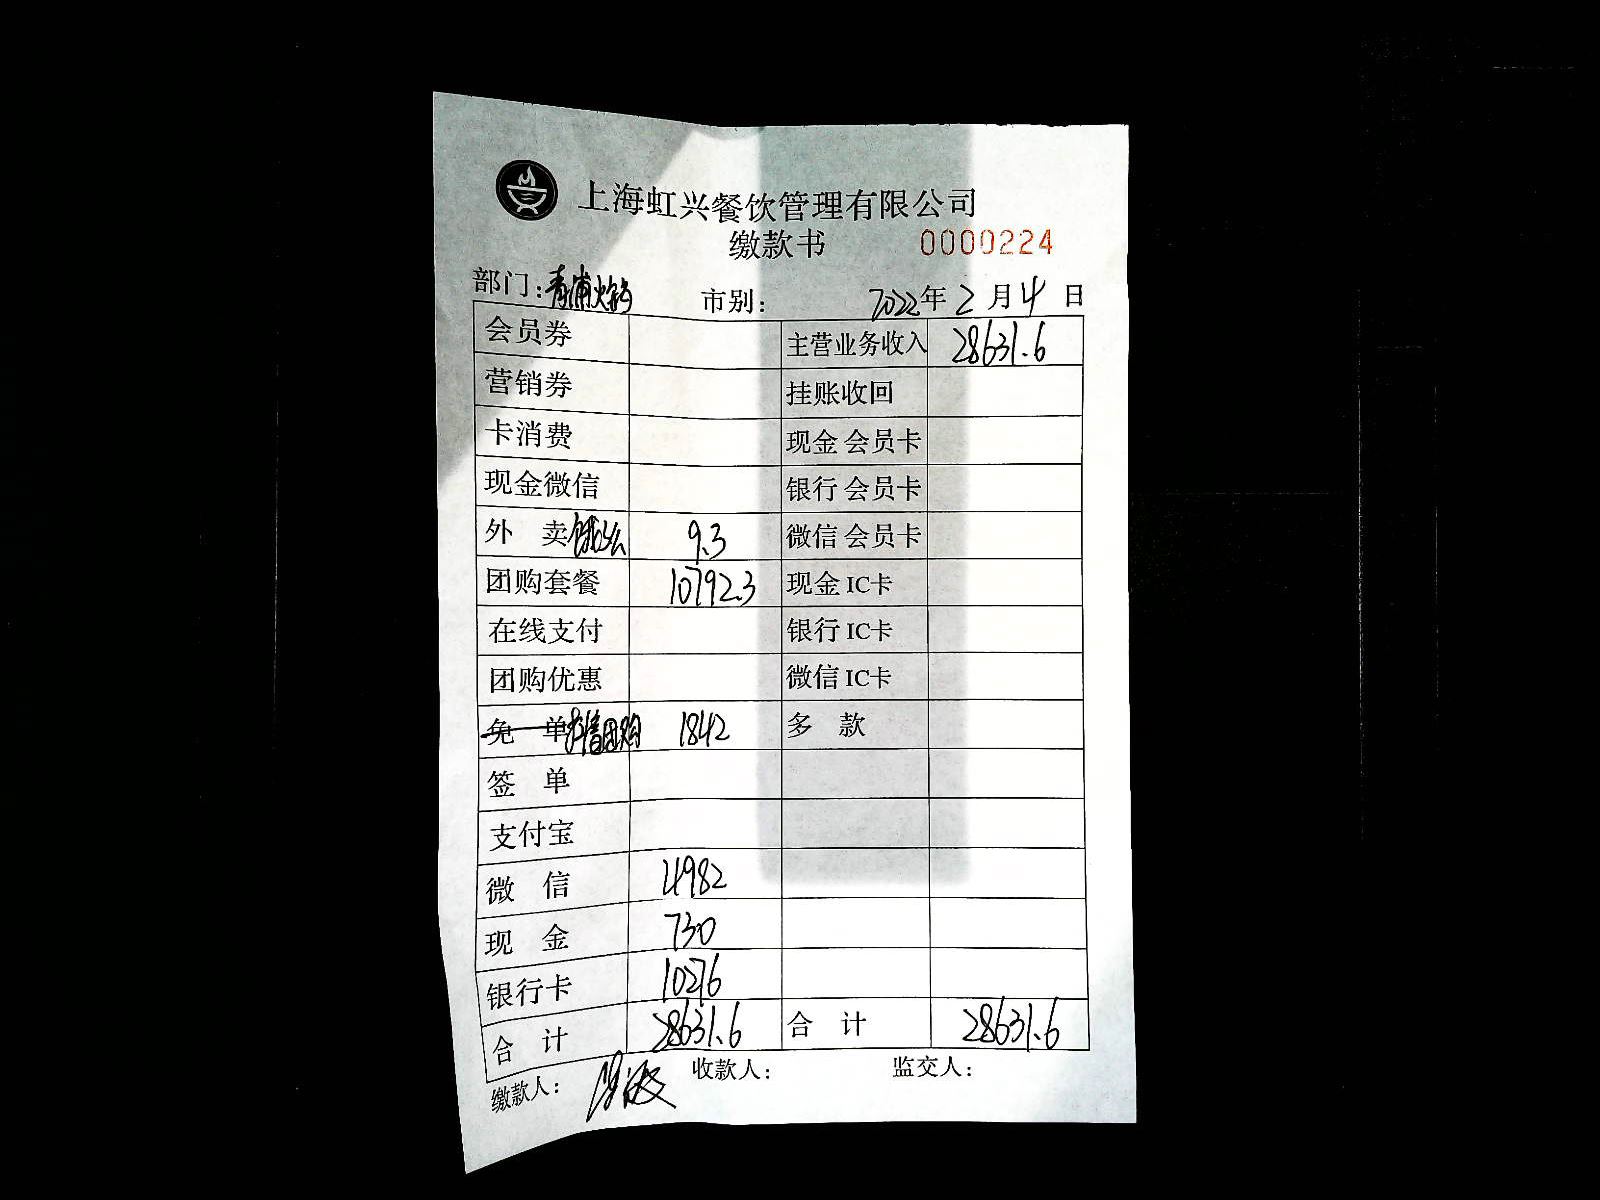 上海虹兴餐饮管理有限公司
缴款书 0000224
部门：青浦火锅 市别： 2022年2月4日
会员券 主营业务收入 28631.6
营销券 挂账收回
卡消费 现金会员卡
现金微信 银行会员卡
外卖 饿了么 9.3 微信会员卡
团购套餐 10792.3 现金IC卡
在线支付 银行IC卡
团购优惠 微信IC卡
免单 抖音团购 1842 多款
签单
支付宝
微信 4982
现金 730
银行卡 10276
合计 28631.6 合计 28631.6
缴款人： 收款人： 监交人：